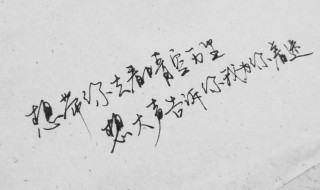 想带你去看晴空万里
想大声告诉你我为你着迷